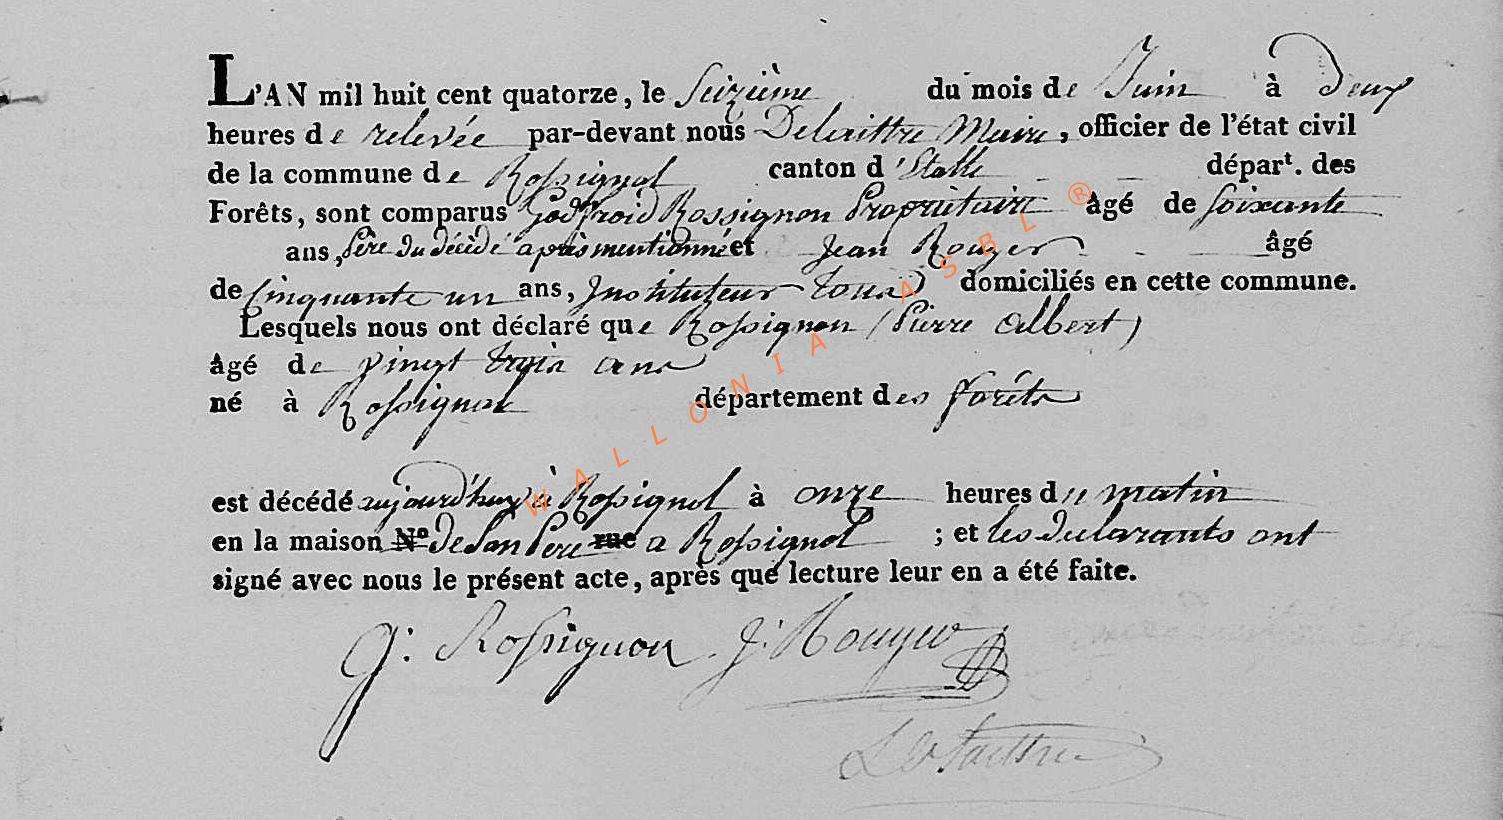 L'AN mil huit cent quatorze, le Seizième du mois de Juin à deux
heures de relevée par-devant nous Delaittre Maire, officier de l'état civil
de la commune de Rossignol canton d'Etalle départ. des
Forêts, sont comparus Godfroid Rossignon Propriétaire âgé de soixante
ans, Père du décédé après mentionné et Jean Rouyer âgé
de Cinquante un ans, Instituteur tous domiciliés en cette commune.
Lesquels nous ont déclaré que Rossignon (Pierre Albert)
âgé de vingt trois ans
né à Rossignol département des forêts
est décédé aujourd'huy à Rossignol à onze heures du matin
en la maison N° de son Pere rue a Rossignol ; et les declarants ont
signé avec nous le présent acte, après que lecture leur en a été faite.
G: Rossignon. J: Rouyer
Delaittre
WALLONIA ASBL ®